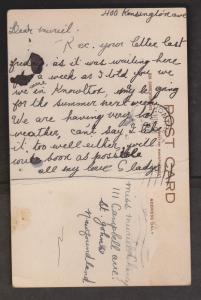 400 Kensington ave
Dear Muriel.
Rec. your letter last
as it was waiting here
a week as I told you we
in Knowlton, may be going
for the summer next week
We are having very hot
weather, can't say I like
it too well either, will
soon as possible
all my love Gladys
POST CARD
ADDRESS ONLY
Miss Muriel
111 Campbell ave.
St. John's
Newfoundland